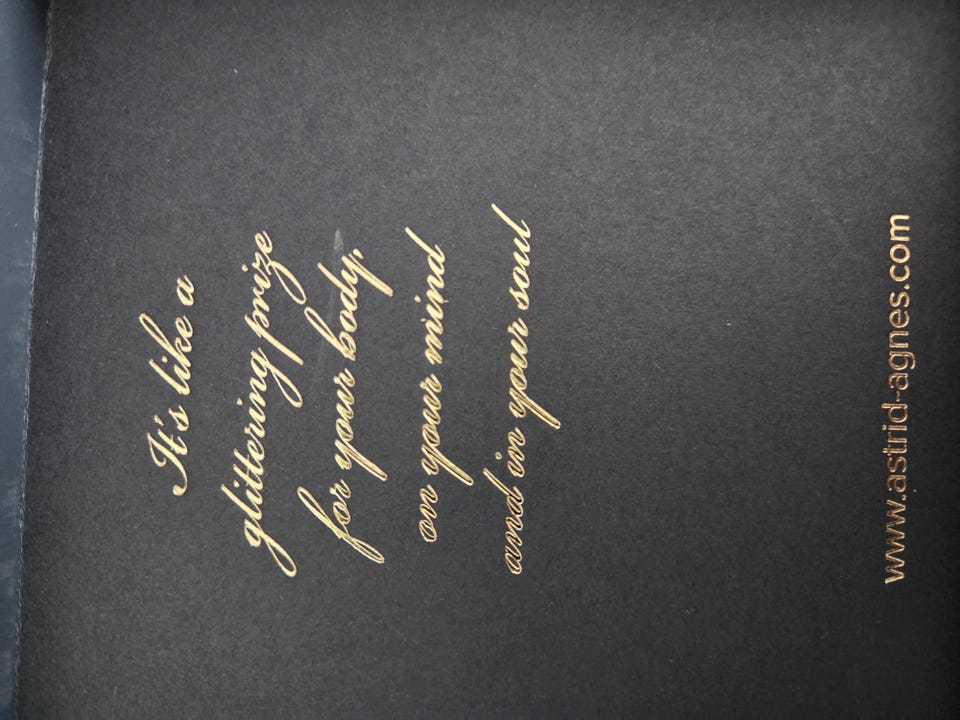 It's like a
glittering prize
for your body,
on your mind
and in your soul
www.astrid-agnes.com